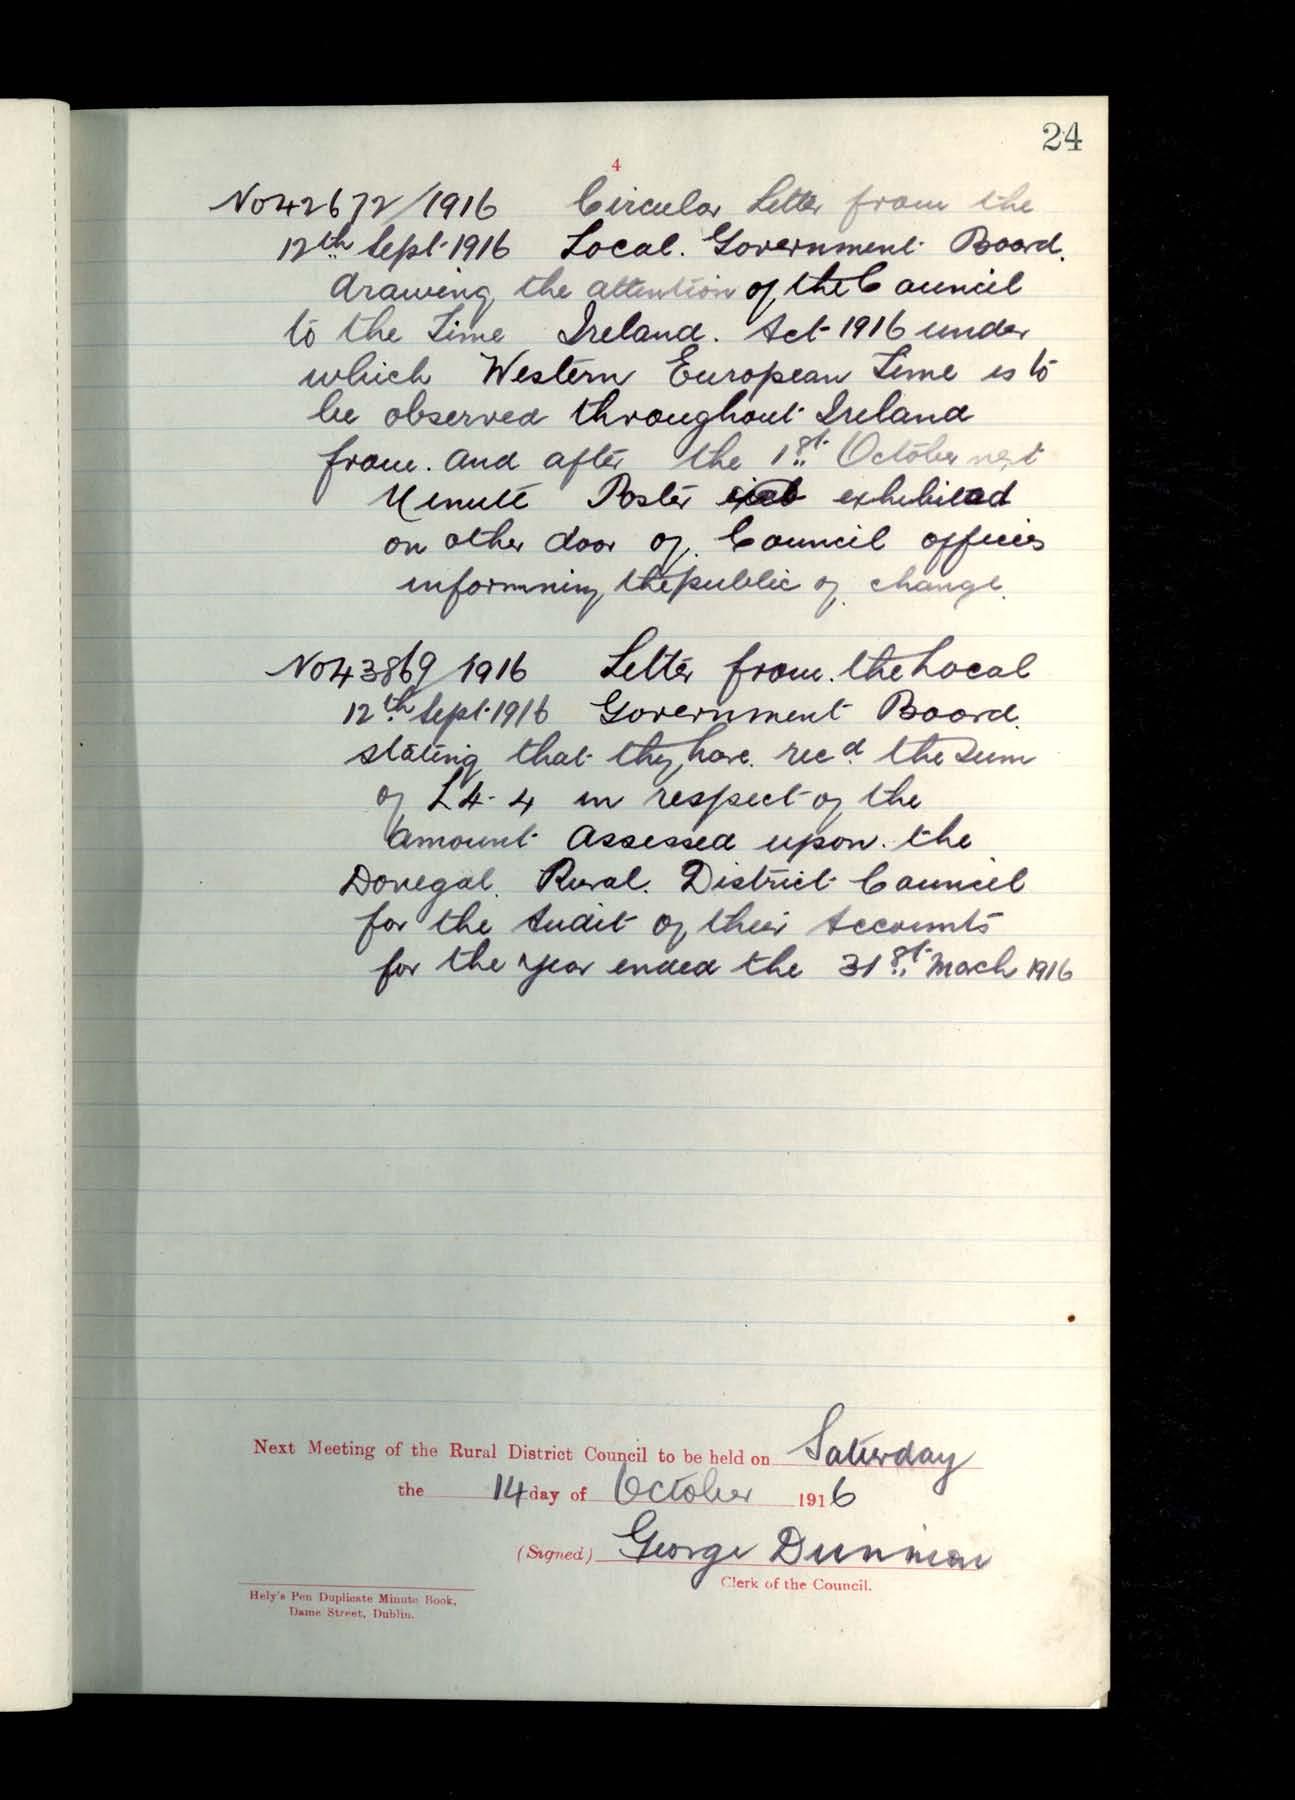 24
4
No 42672/1916 Circular Letter from the
12th Sept. 1916 Local. Government Board.
drawing the attention of the Council
to the Time Ireland. Act 1916 under
which Western European Time is to
be observed throughout Ireland
from. and after the 1st. October next
Minute Poster exhibited
on other door of. Council offices
informning the public of. change.
No 43869/1916 Letter from. the Local
12th Sept. 1916 Government Board.
stating that they have. recd. the sum
of £4-4 in respect of the
amount assessed upon. the
Donegal. Rural. District Council
for the Audit of their Accounts
for the year ended the 31st. March 1916
Next Meeting of the Rural District Council to be held on Saturday
the 14 day of October 1916
(Signed) George Dunnion
Clerk of the Council.
Hely's Pen Duplicate Minute Book,
Dame Street, Dublin.